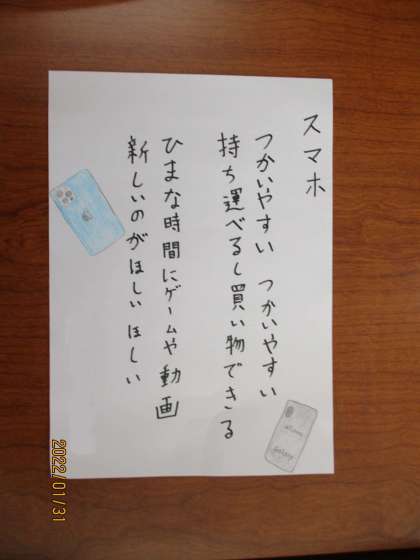 スマホ
つかいやすい つかいやすい
持ち運べるし買い物できる
ひまな時間にゲームや動画
新しいのがほしい ほしい
Galaxy
2022/01/31